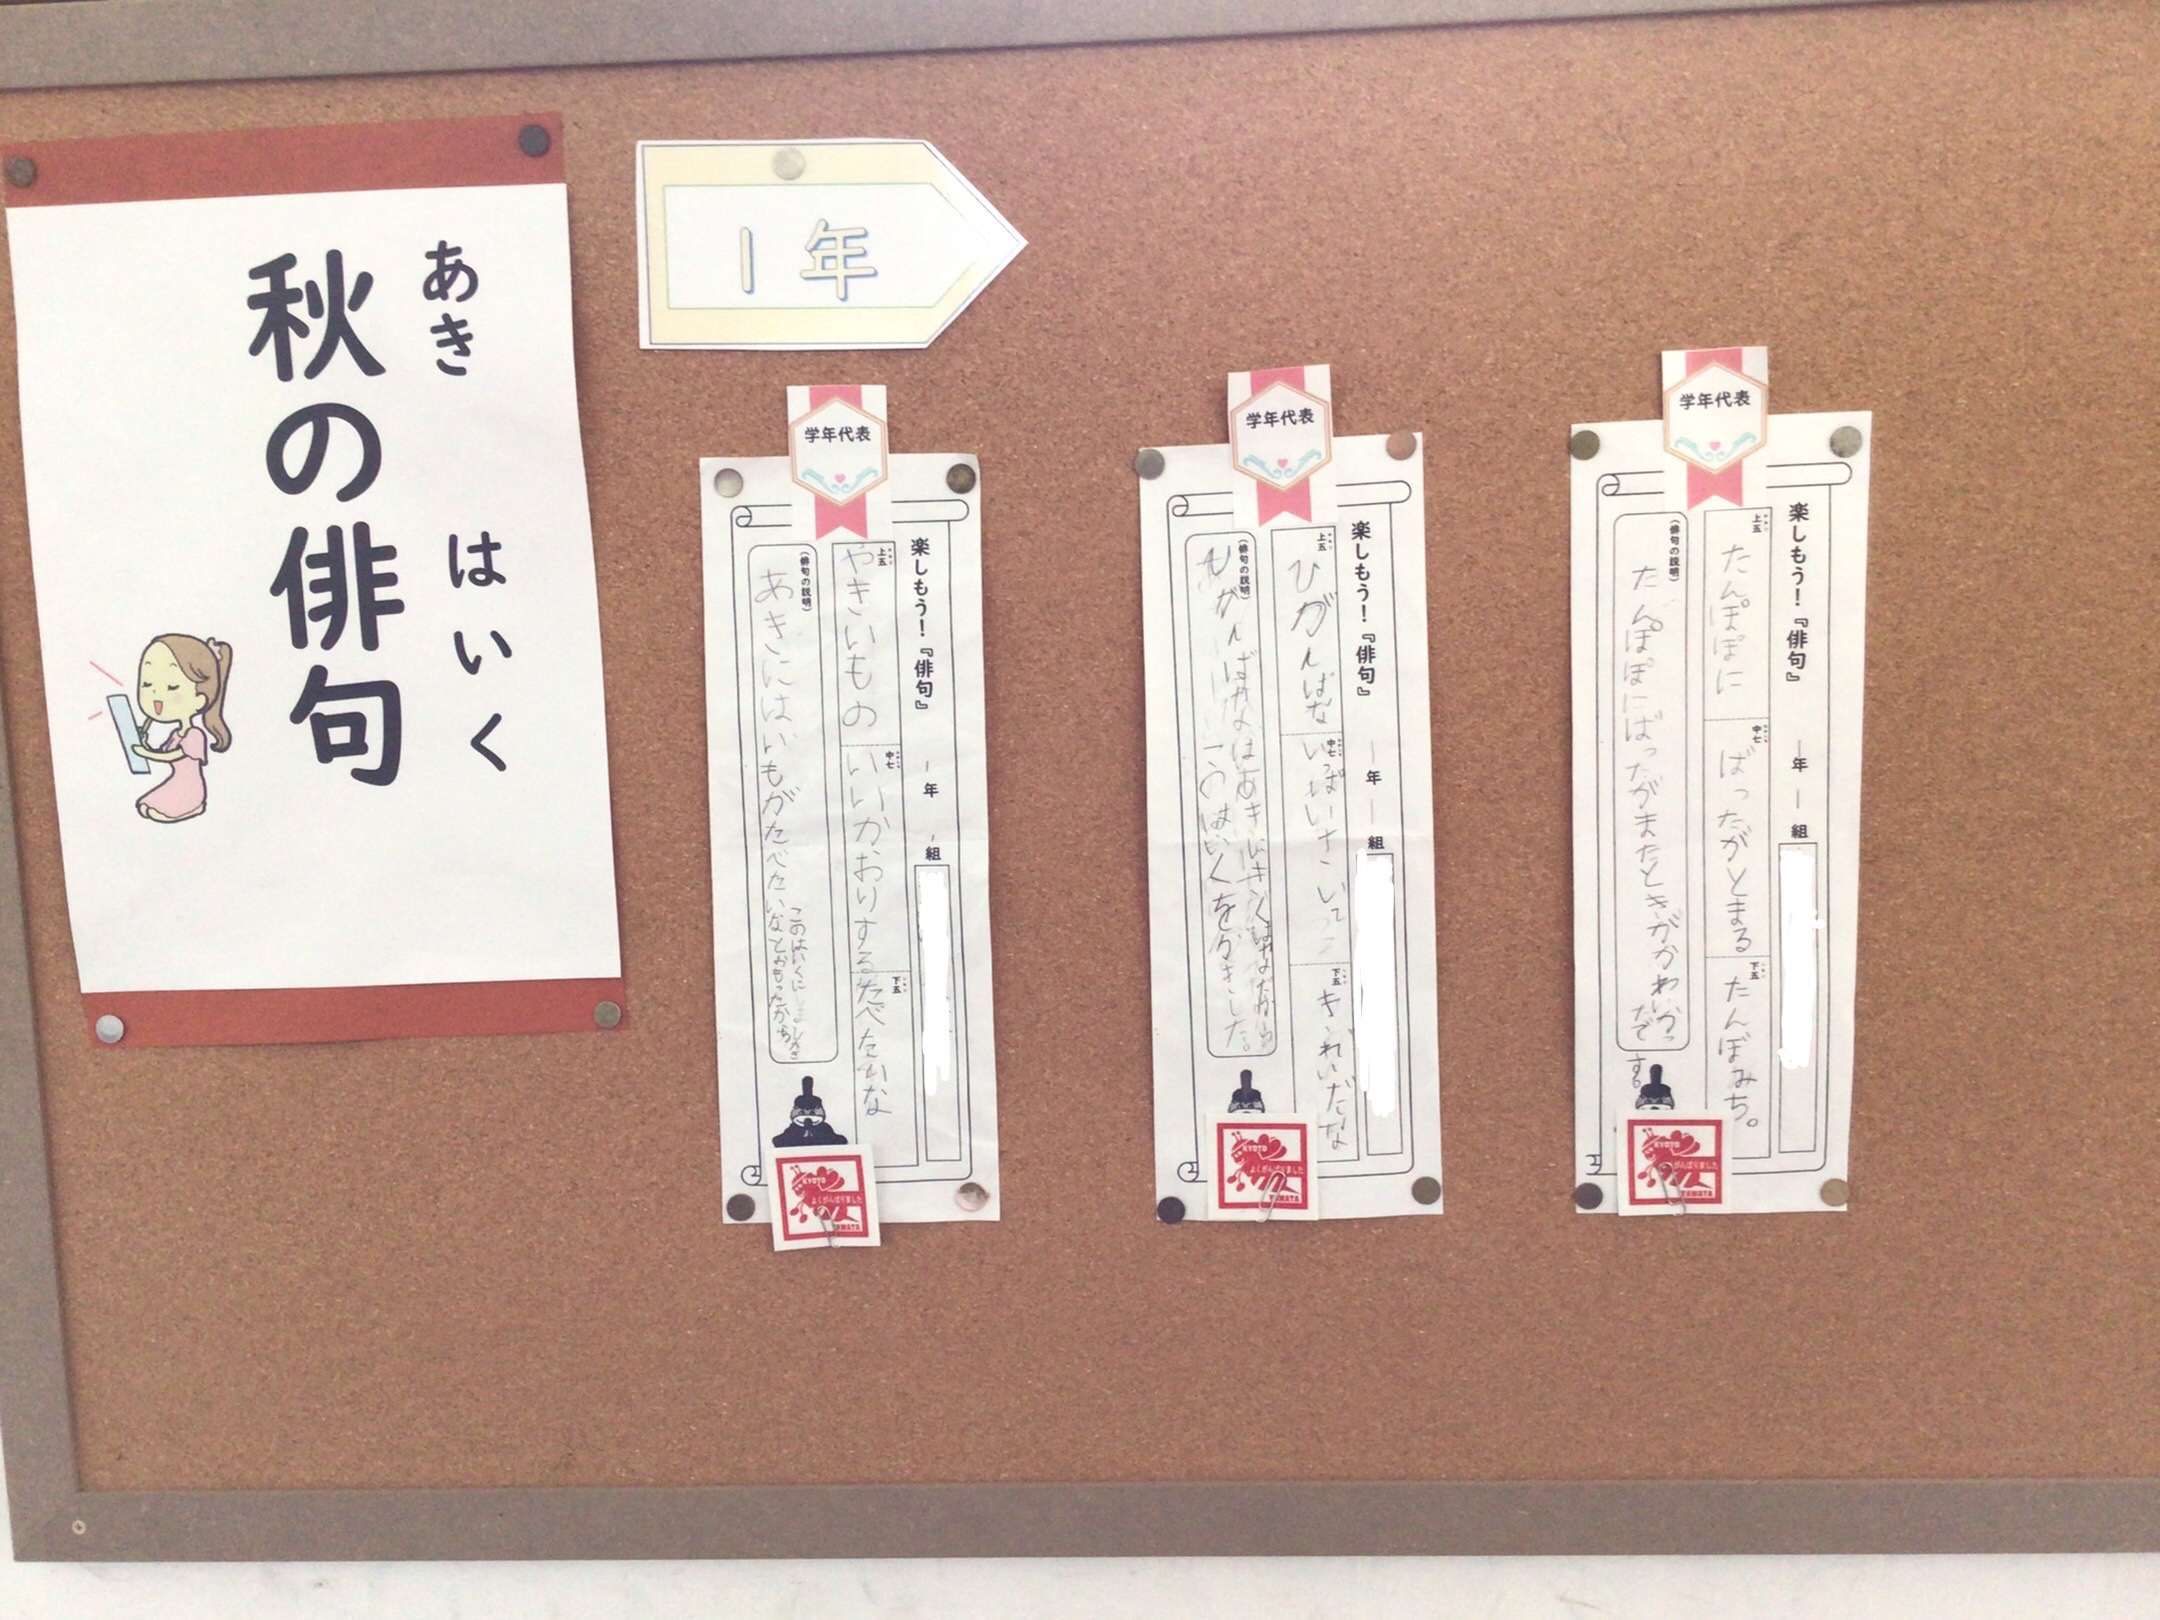 あき はいく
秋の俳句
1年
学年代表
楽しもう!『俳句』 一年 一組
上五
やきいもの
中七
いいかおりする
下五
たべたいな
(俳句の説明)
あきにはいもがたべたいなとおもったから
このはいくにしました
学年代表
楽しもう!『俳句』 一年 一組
上五
ひがんばな
中七
いっぱいさいて
下五
きれいだな
(俳句の説明)
ひがんばなはあきにさくはなだから
このはいくをかきました。
学年代表
楽しもう!『俳句』 一年 一組
上五
たんぽぽに
中七
ばったがとまる
下五
たんぼみち。
(俳句の説明)
たんぽぽにばったがまたときがかわいかっ
たです。
KYOTO
よくがんばりました
YAWATA
KYOTO
よくがんばりました
YAWATA
KYOTO
がんばりました
YAWATA